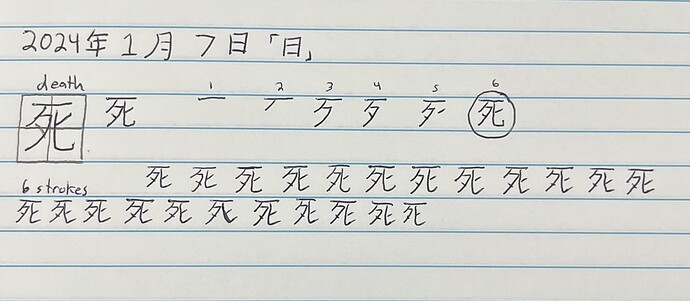 2024年 1月 7日「日」
death 1 2 3 4 5 6
死 死 一 死
6 strokes 死 死 死 死 死 死 死 死 死 死 死 死
死 死 死 死 死 死 死 死 死 死 死